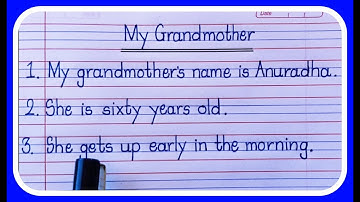 Date
My Grandmother
1. My grandmother's name is Anuradha.
2. She is sixty years old.
3. She gets up early in the morning.